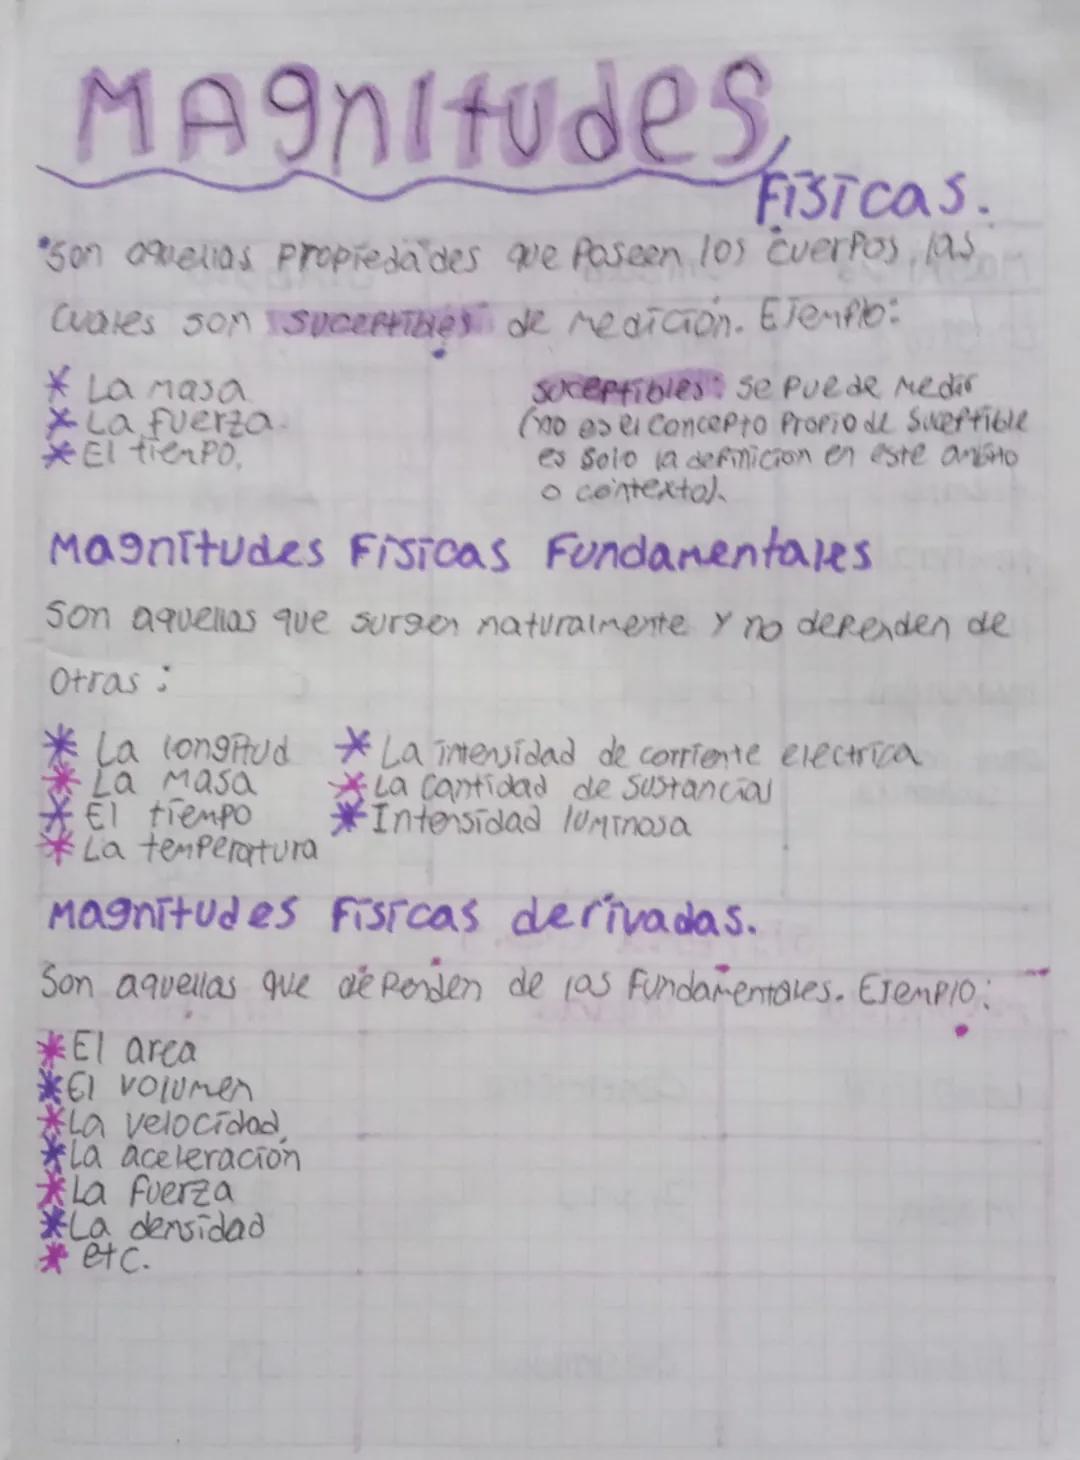 MAgnItudes
Físicas.
*Son aquellas propiedades que poseen los cuerpos, las
cuales son suceptibles de medición. Ejemplo:
* La masa
* La fuerza.
* El tiempo.
suceptibles: se puede medir
(no es el concepto propio de suceptible
es solo la definicion en este ambito
o contexto).
Magnitudes Físicas Fundamentales
Son aquellas que surgen naturalmente y no dependen de
otras:
* La longitud * La intensidad de corriente electrica
* La masa * La cantidad de sustancias
* El tiempo * Intensidad luminosa
* La temperatura
Magnitudes Físicas derivadas.
Son aquellas que dependen de las fundamentales. Ejemplo:
* El area
* El volumen
* La velocidad,
* La aceleración
* La fuerza
* La densidad
* etc.